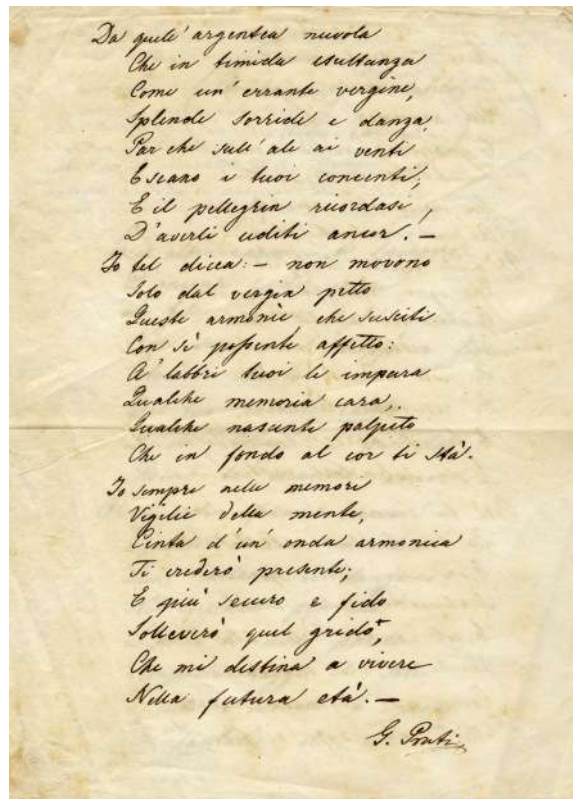 Da quell' argentea nuvola
Che in timida esultanza
Come un' errante vergine,
Splende sorride e danza,
Par che sull' ale ai venti
Escano i tuoi concenti;
E il pellegrin ricordasi,
D'averli uditi ancor. —
Io tel dicea: — non movono
Solo dal vergin petto
Queste armonie, che susciti
Con sì possente affetto:
A' labbri tuoi le impara
Qualche memoria cara,
Qualche nascente palpito
Che in fondo al cor ti stà.
Io sempre nelle memori
Vigilie della mente,
Cinta d'un' onda armonica
Ti crederò presente;
E più securo e fido
Solleverò quel grido,
Che mi destina a vivere
Nella futura età. —
G. Prati